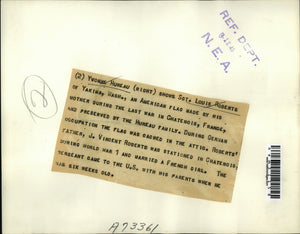 REF. DEPT.
N. E. A.
2
(2) YVONNE HUREAU (RIGHT) SHOWS SGT. LOUIS ROBERTS
OF YAKIMA, WASH., AN AMERICAN FLAG MADE BY HIS
MOTHER DURING THE LAST WAR IN CHATENOIS, FRANCE,
AND PRESERVED BY THE HUREAU FAMILY. DURING GERMAN
OCCUPATION THE FLAG WAS CACHED IN THE ATTIC. ROBERTS'
FATHER, J. VINCENT ROBERTS WAS STATIONED IN CHATENOIS,
DURING WORLD WAR I AND MARRIED A FRENCH GIRL. THE
SERGEANT CAME TO THE U.S. WITH HIS PARENTS WHEN HE
WAS SIX WEEKS OLD.
A73361